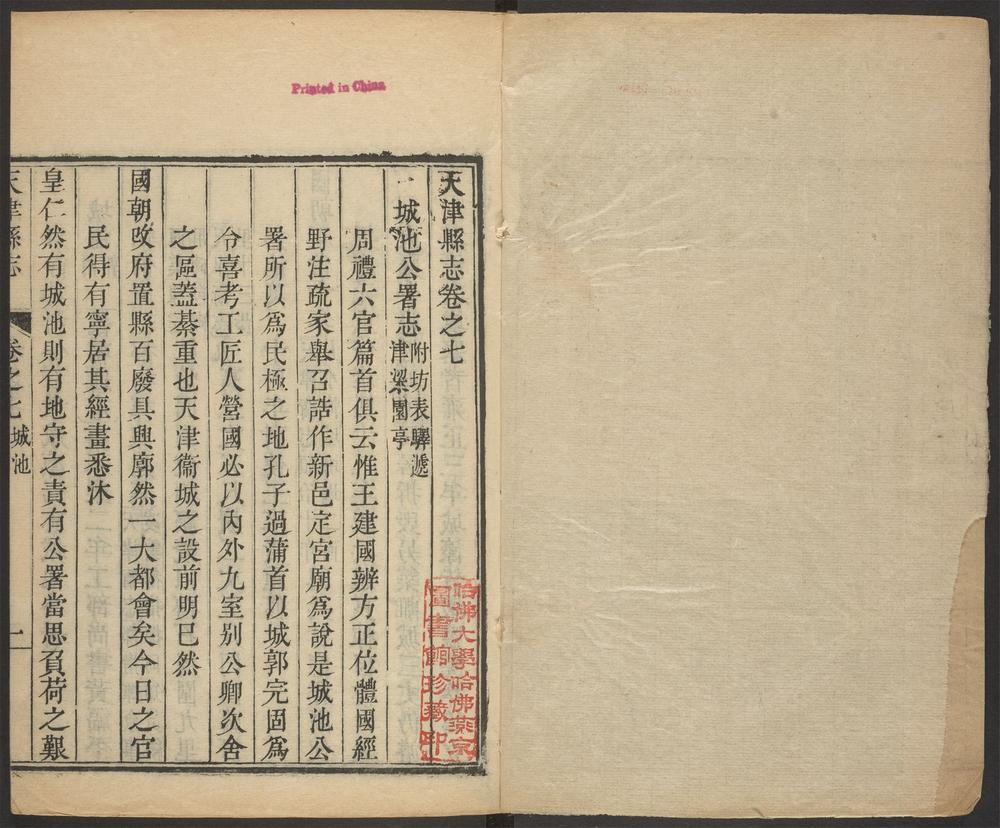 Printed in China
天津縣志卷之七
一城池公署志附坊表驛遞
津梁園亭
周禮六官篇首俱云惟王建國辨方正位體國經
野注疏家舉召誥作新邑定宮廟爲說是城池公
署所以爲民極之地孔子過蒲首以城郭完固爲
令喜考工匠人營國必以內外九室别公卿次舍
之區蓋綦重也天津衞城之設前明已然
國朝改府置縣百廢具興廓然一大都會矣今日之官
民得有寧居其經畫悉沐
皇仁然有城池則有地守之責有公署當思負荷之艱
天津縣志
卷之七城池
一
哈佛大學哈佛燕京
圖書館珍藏印